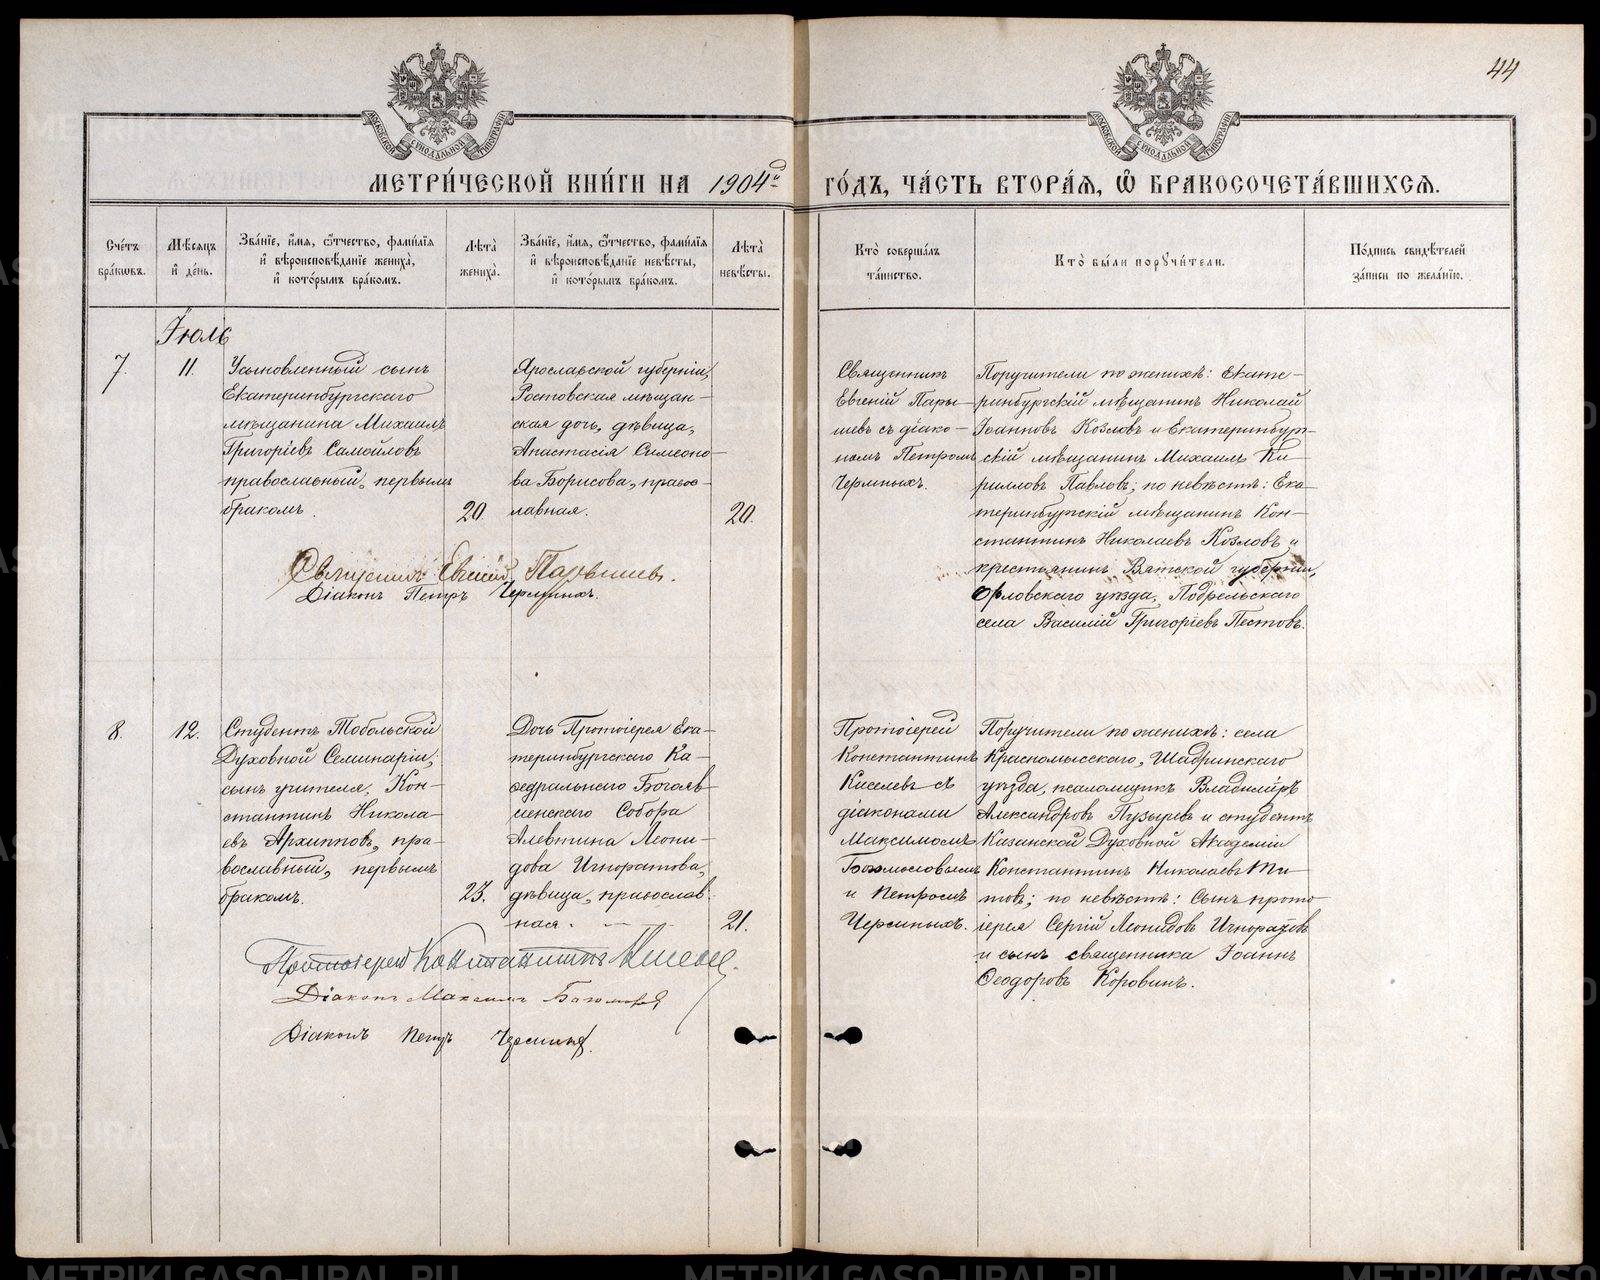 44
МЕТРИ́ЧЕСКОЙ КНИ́ГИ НА 1904й ГО́ДЪ, ЧА́СТЬ ВТОРА́Я, Ѽ БРАКОСОЧЕТА́ВШИХСЯ.
Сче́тъ бра́ковъ.
Мѣ́сяцъ и҆ де́нь.
Зва́нїе, и҆́мя, ѻ҆́тчество, фами́лїя
и҆ вѣроисповѣ́данїе жениха̀,
и҆ кото́рымъ бра́комъ.
Лѣ́та жениха̀.
Зва́нїе, и҆́мя, ѻ҆́тчество, фами́лїя
и҆ вѣроисповѣ́данїе невѣ́сты,
и҆ кото́рымъ бра́комъ.
Лѣ́та невѣ́сты.
Кто̀ соверша́лъ
та́инство.
Кто̀ бы́ли порꙋчи́тели.
По́дпись свидѣ́телей
за́писи по жела́нїю.
Іюль
7.
11.
Усыновленный сынъ
Екатеринбургскаго
мѣщанина Михаилъ
Григоріевъ Самойловъ
православный, первымъ
бракомъ.
20.
Ярославской губерніи,
Ростовская мѣщан-
ская дочь, дѣвица,
Анастасія Симеоно-
ва Борисова, правос-
лавная.
20.
Священникъ
Евгеній Пары-
шевъ съ діако-
номъ Петромъ
Черныхъ.
Поручители по женихѣ: Екате-
ринбургскій мѣщанинъ Николай
Іоанновъ Козловъ и Екатеринбург-
скій мѣщанинъ Михаилъ Ки-
рилловъ Павловъ; по невѣстѣ: Ека-
теринбургскій мѣщанинъ Кон-
стантинъ Николаевъ Козловъ и
крестьянинъ Вятской губерніи,
Орловскаго уѣзда, Подрельскаго
села Василій Григоріевъ Пестовъ.
Священникъ Евгеній Парышевъ.
Діаконъ Петръ Черныхъ.
8.
12.
Студентъ Тобольской
Духовной Семинаріи,
сынъ учителя, Кон-
стантинъ Никола-
евъ Архипповъ, пра-
вославный, первымъ
бракомъ.
23.
Дочь Протоіерея Ека-
теринбургскаго Ка-
ѳедральнаго Богояв-
ленскаго Собора
Алевтина Леони-
дова Игноратова,
дѣвица, православ-
ная.
21.
Протоіерей
Константинъ
Киселевъ съ
діаконами
Максимомъ
Богомоловымъ
и Петромъ
Черныхъ.
Поручители по женихѣ: села
Красномысскаго, Шадринскаго
уѣзда, псаломщикъ Владиміръ
Александровъ Пузыревъ и студентъ
Казанской Духовной Академіи
Константинъ Николаевъ Ти-
товъ; по невѣстѣ: Сынъ прото-
іерея Сергій Леонидовъ Игноратовъ
и сынъ священника Іоаннъ
Ѳеодоровъ Коровинъ.
Протоіерей Константинъ Киселевъ.
Діаконъ Максимъ
Діаконъ Петръ Черныхъ.
METRIKI.GASO-URAL.RU